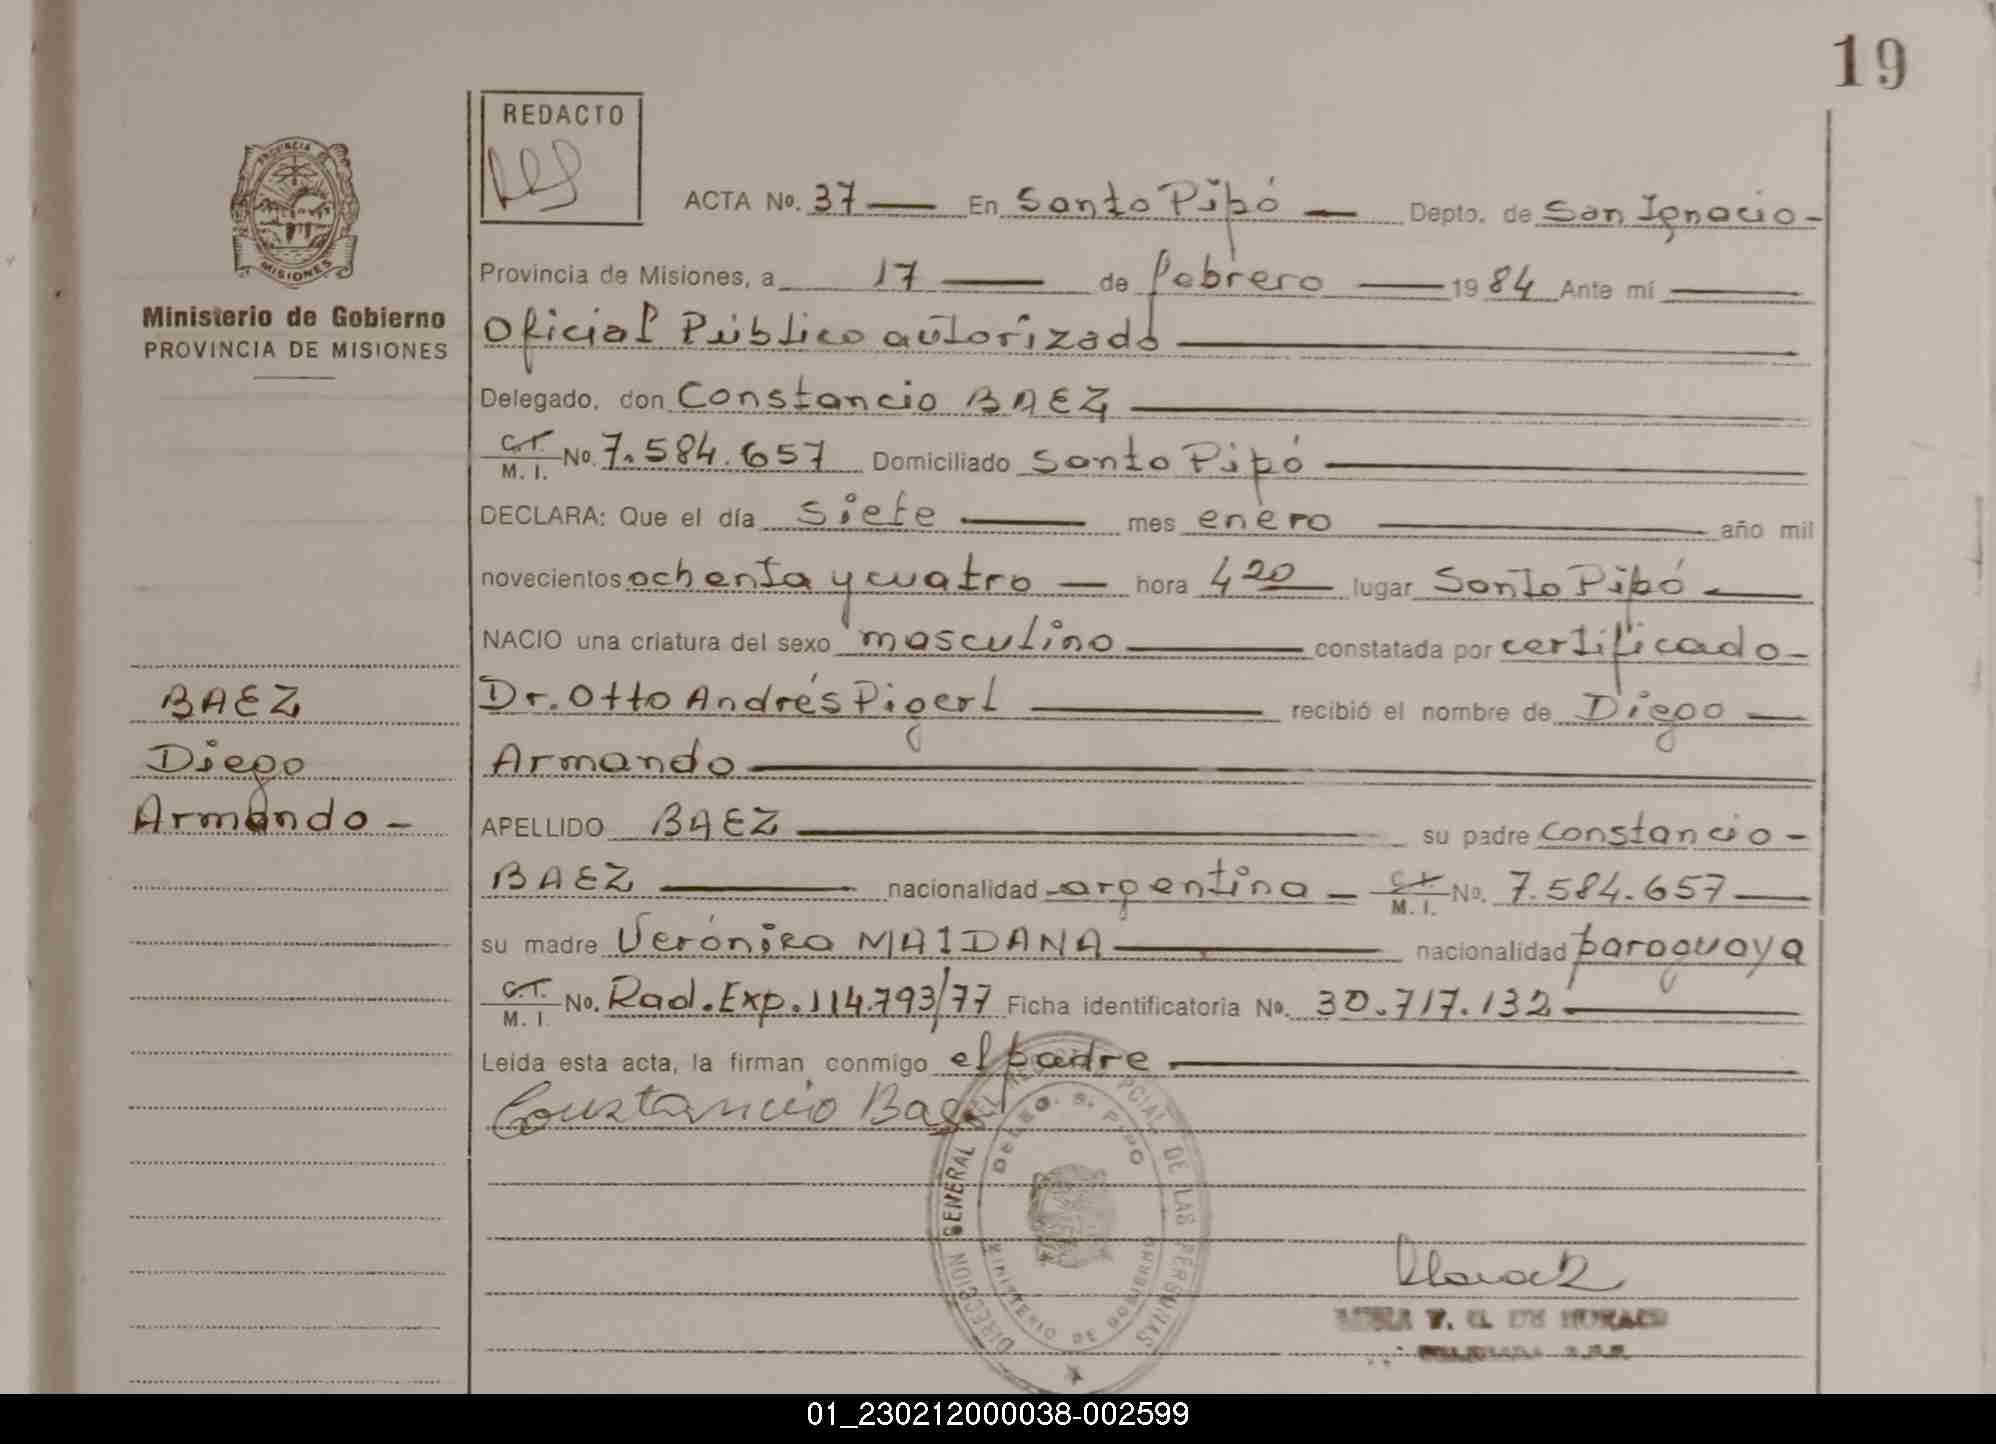 19
REDACTO
PROVINCIA DE
MISIONES
Ministerio de Gobierno
PROVINCIA DE MISIONES
ACTA Nº. 37 — En Santo Pipó — Depto. de San Ignacio -
Provincia de Misiones, a 17 — de febrero — 1984 Ante mí —
Oficial Público autorizado —
Delegado, don Constancio BAEZ —
C.I. M. I. Nº. 7.584.657 Domiciliado Santo Pipó —
DECLARA: Que el día siete — mes enero — año mil
novecientos ochenta y cuatro — hora 4 20 lugar Santo Pipó —
NACIO una criatura del sexo masculino — constatada por certificado -
Dr. Otto Andrés Pigerl — recibió el nombre de Diego —
Armando —
APELLIDO BAEZ — su padre Constancio -
BAEZ — nacionalidad argentina - C.I. M. I. Nº. 7.584.657 —
su madre Verónica MAIDANA — nacionalidad paraguaya
C.I. M. I. Nº. Rad. Exp. 114.793/77 Ficha identificatoria Nº. 30.717.132 —
Leída esta acta, la firman conmigo el padre —
Constancio Baez
BAEZ
Diego
Armando -
DIRECCION GENERAL DEL REGISTRO PCIAL. DE LAS PERSONAS
DELEG. S. PIPO
MINISTERIO DE GOBIERNO
01_230212000038-002599